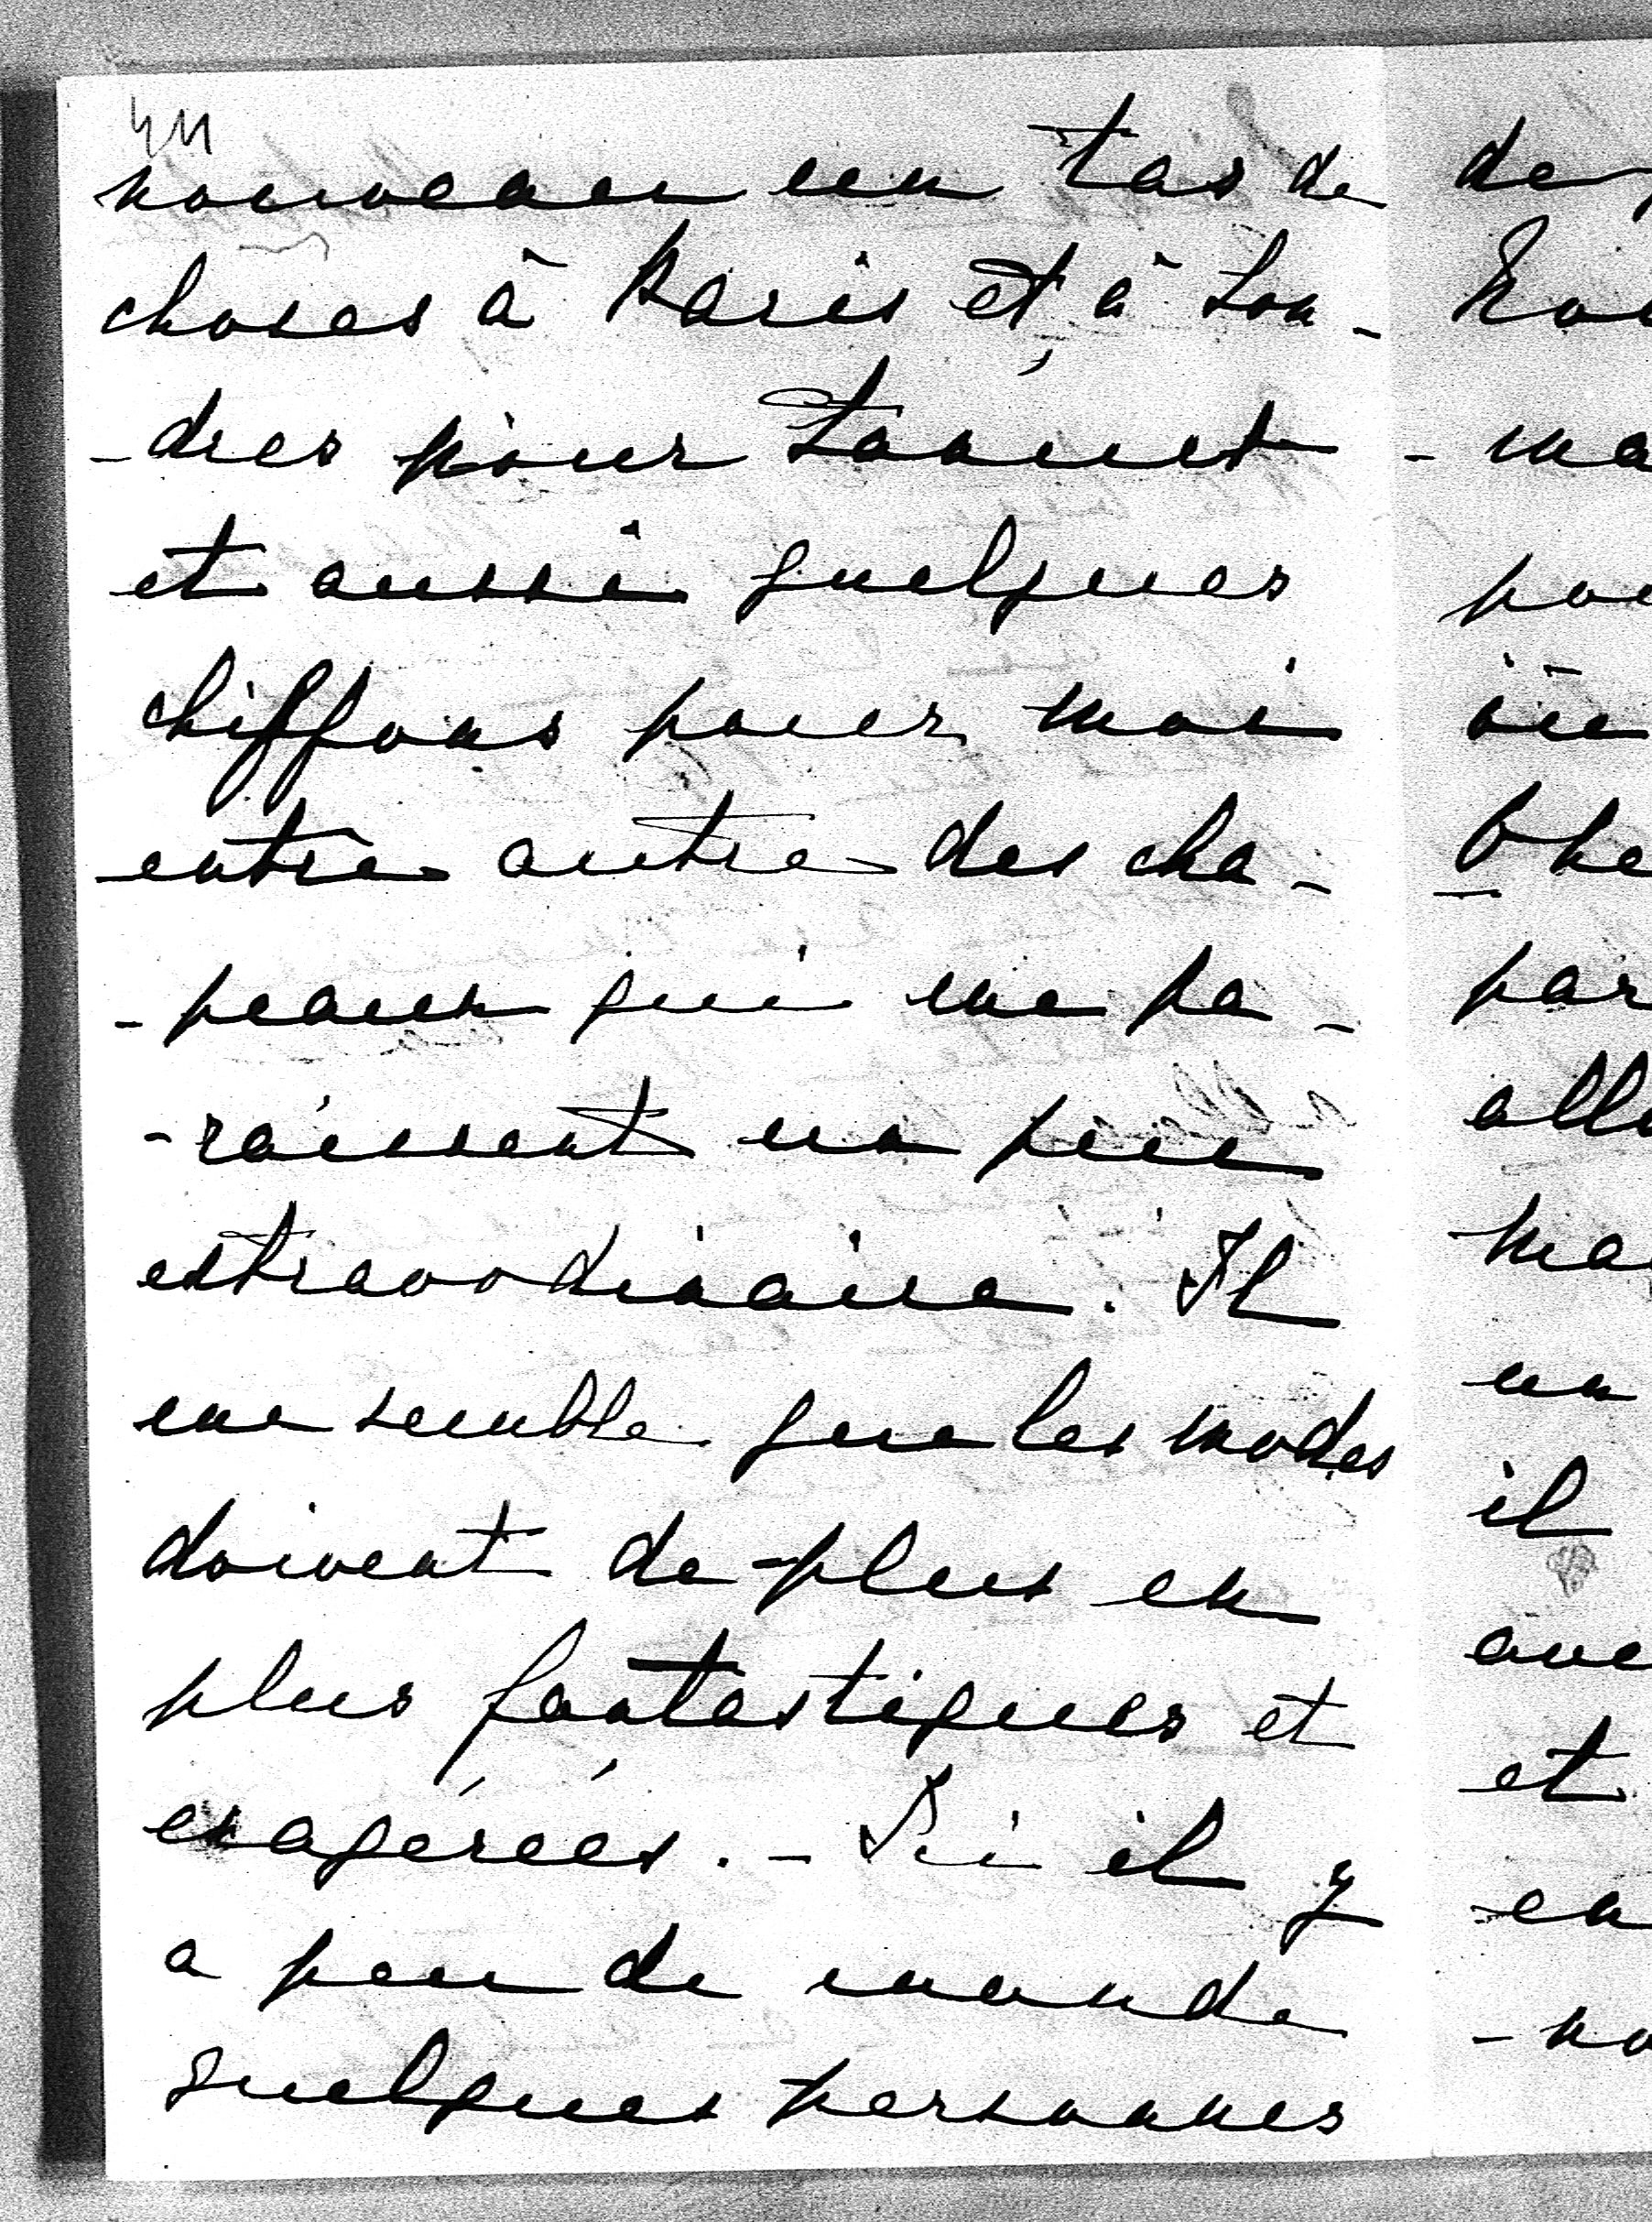 411
nouveau un tas de
choses à Paris et à Lon-
-dres pour
et aussi quelques
chiffons pour moi
entre autre des cha-
-peaux qui me pa-
-raissent un peu
extraordinaire. Il
me semble que les modes
doivent de plus en
plus fantastiques et
exagérées. - Ici il y
a peu de monde
quelques personnes
de
- ma
par
un
il
et
en
- no